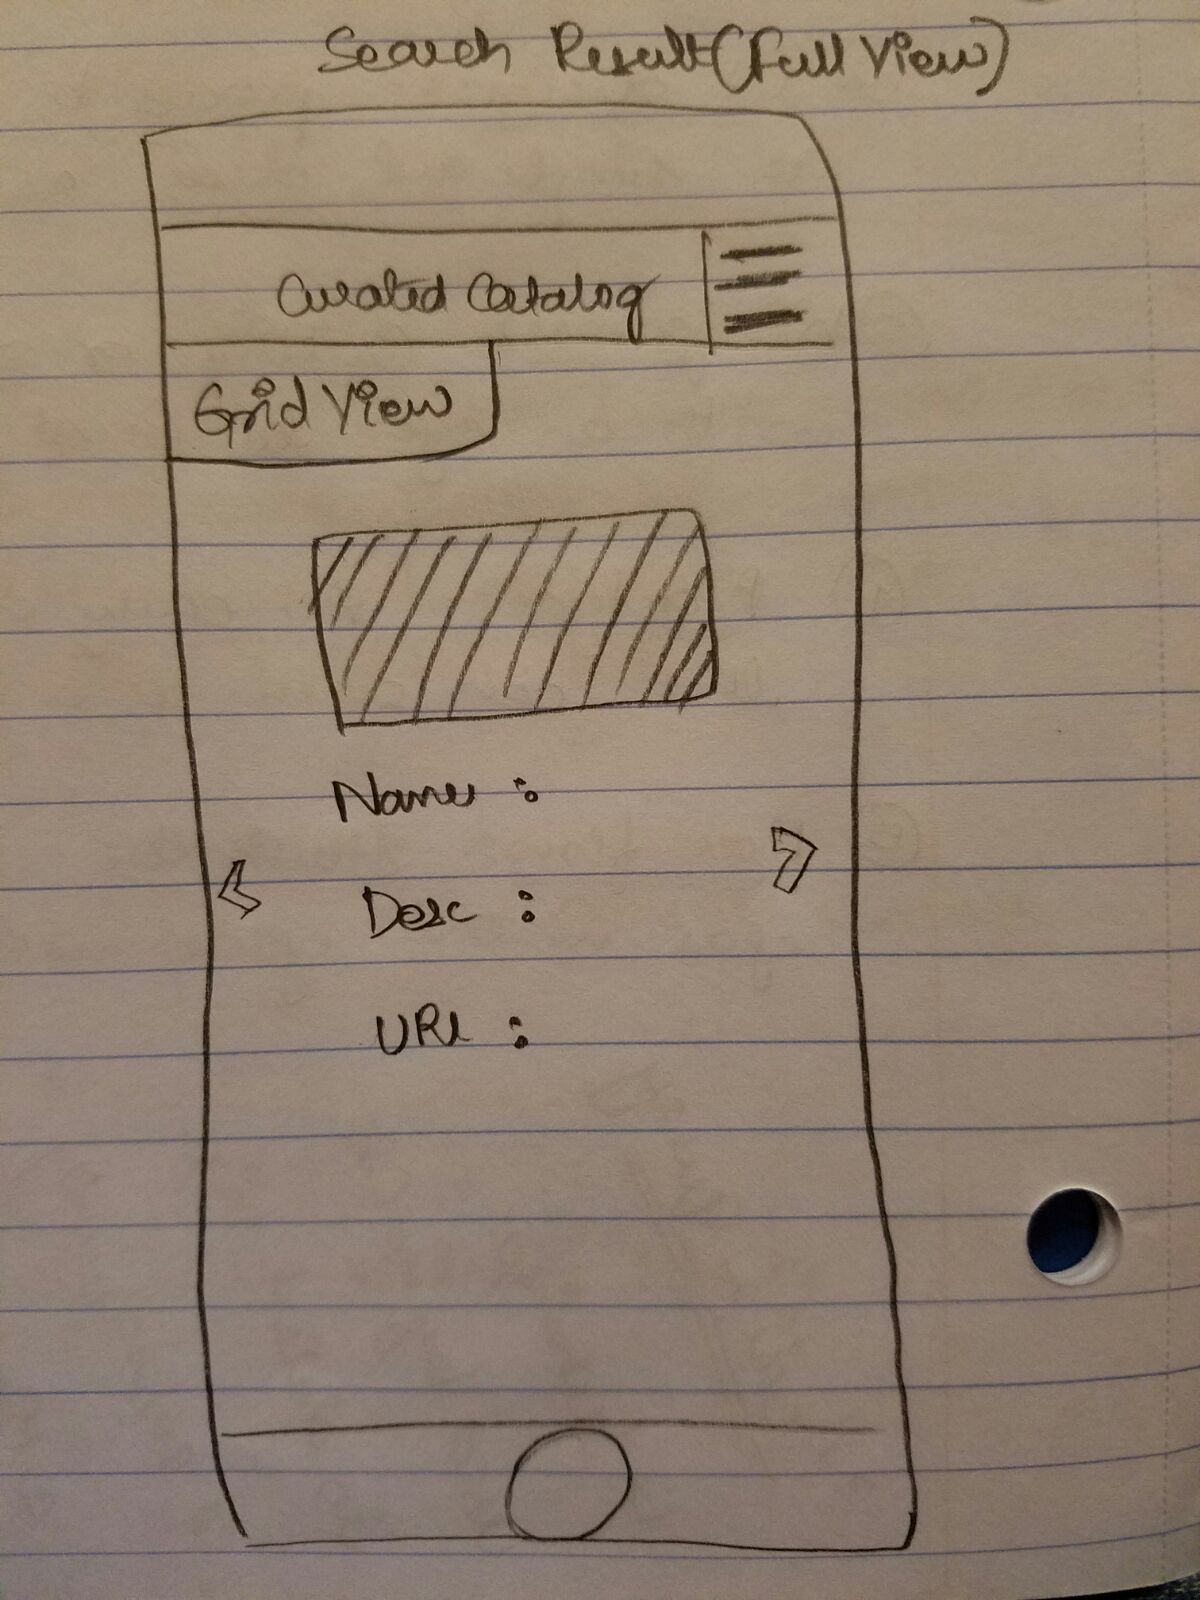 Search Result (Full View)
Curated Catalog
Grid View
Name :
Desc :
URL :